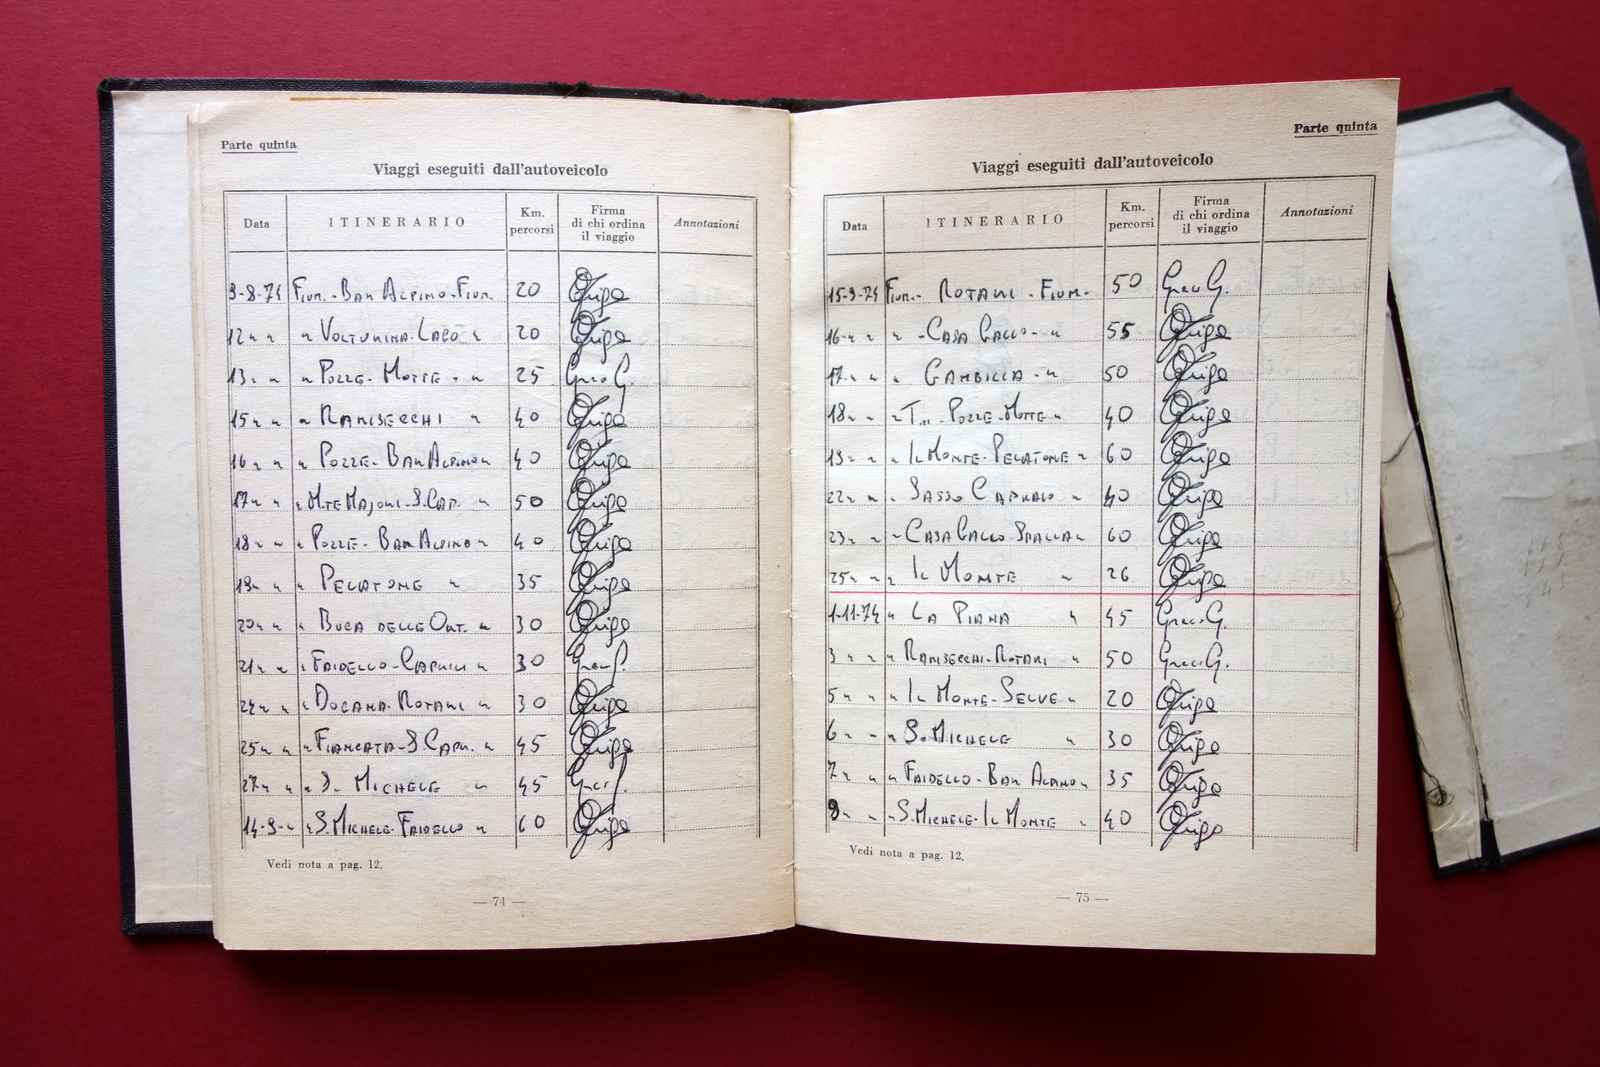 Parte quinta
Viaggi eseguiti dall'autoveicolo
Data ITINERARIO Km. percorsi Firma di chi ordina il viaggio Annotazioni
9-8-74 Fium.-Bar Alpino-Fium. 20
12 " " " Volturina-Lago " 20
13 " " " Pozze-Motte-" 25 Greco G.
15 " " " Ramisecchi " 40
16 " " " Pozze-Bar Alpino " 40
17 " " " M.te Majori-S.Cap. " 50
18 " " " Pozze-Bar Alpino " 40
19 " " " Pelatone " 35
20 " " " Buca delle " 30
21 " " " Faidello- " 30
24 " " " Dogana-Rotari " 30
25 " " " Fiancata-S. " 45
27 " " " S. Michele " 45
14-9-" " S.Michele-Faidello " 60
Vedi nota a pag. 12.
— 74 —
Parte quinta
Viaggi eseguiti dall'autoveicolo
Data ITINERARIO Km. percorsi Firma di chi ordina il viaggio Annotazioni
15-9-74 Fium.-Rotari-Fium. 50 Greco G.
16-" " " -Casa Gallo-" 55
17 " " " Gambilla-" 50
18 " " " Pozze-Motte " 40
19 " " " Il Monte-Pelatone " 60
22 " " " Sasso " 40
23 " " " Casa Gallo- " 60
25 " " " Il Monte " 26
1-11-74 " La Piana " 45 Greco G.
3 " " " Ramisecchi-Rotari " 50 Greco G.
5 " " " Il Monte-Selve " 20
6 " " " S. Michele " 30
7 " " " Faidello-Bar Alpino " 35
9 " " " S.Michele-Il Monte " 40
Vedi nota a pag. 12.
— 75 —